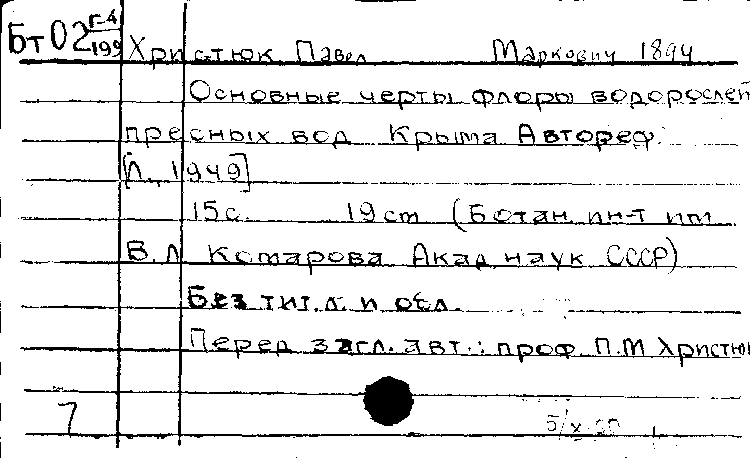 Бт02 Г-4/199
Христюк Павел Маркович 1894
Основные черты флоры водорослей
пресных вод Крыма Автореф.
[Л., 1949]
15с. 19cm (Ботан. ин-т им
В.Л Комарова Акад наук СССР)
Без тит.л. и обл.
Перед загл. авт.: проф. П.М Христюк
7